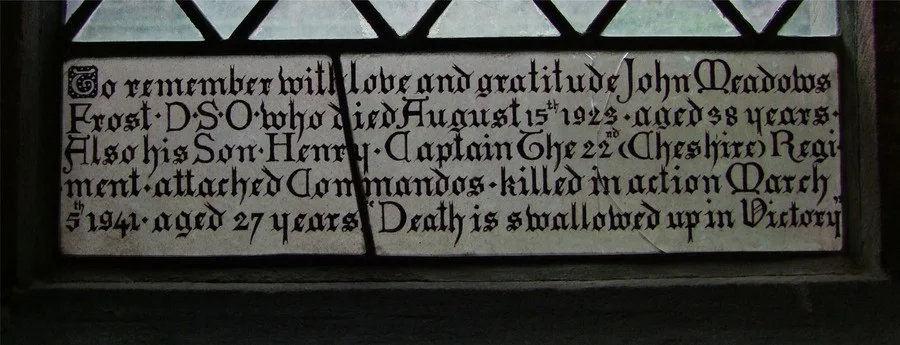 To remember with love and gratitude John Meadows
Frost · D·S·O· who died August 15th 1923 · aged 58 years ·
Also his Son · Henry · Captain The 22nd (Cheshire) Regi-
ment · attached Commandos · killed in action March
5th 1941 · aged 27 years "Death is swallowed up in Victory"